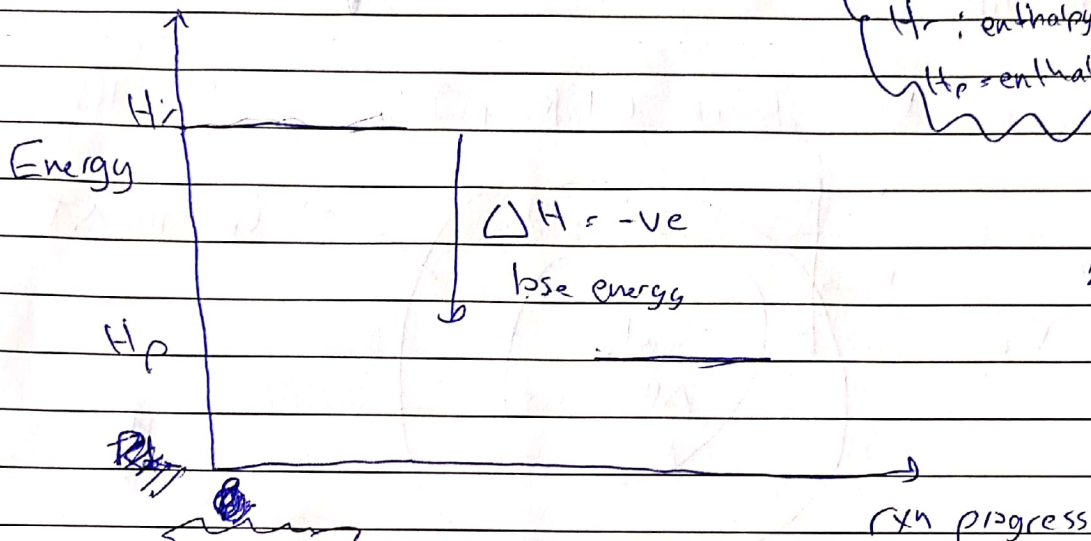 Hr : enthalpy
Hp = enthal
Hr
Energy
ΔH = -ve
lose energy
Hp
rxn progress